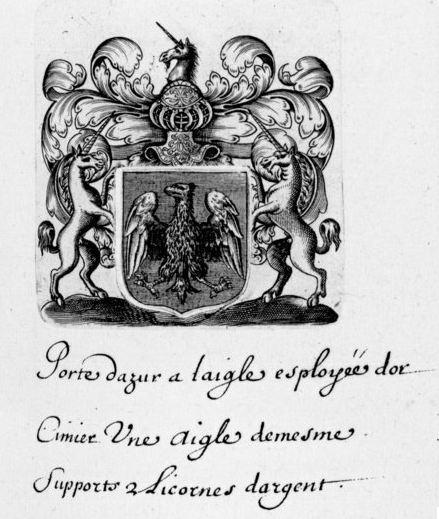 Porte dazur a laigle esployéé dor
Cimier Une aigle demesme.
Supports 2 Licornes dargent.